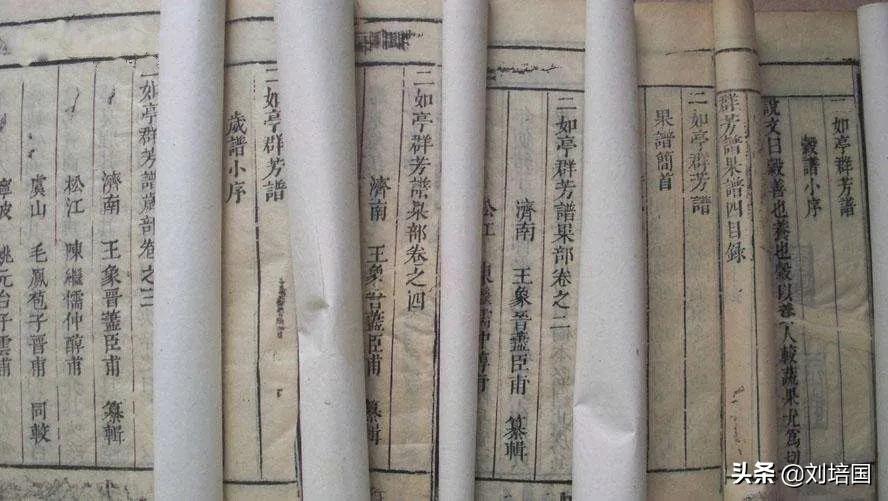 二如亭群芳譜
穀譜小序
說文曰穀善也養也穀以養人較蔬果尤爲
群芳譜果譜四目錄
二如亭群芳譜
果譜簡首
二如亭群芳譜果部卷之二
濟南 王象晉藎臣甫 纂輯
松江
二如亭群芳譜果部卷之四
濟南 王象晉藎臣甫 纂輯
二如亭群芳譜
歲譜小序
二如亭群芳譜歲部卷之三
濟南 王象晉藎臣甫 纂輯
松江 陳繼儒仲醇甫
虞山 毛鳳苞子晉甫 同較
寧波 姚元台子雲甫
头条 @刘培国